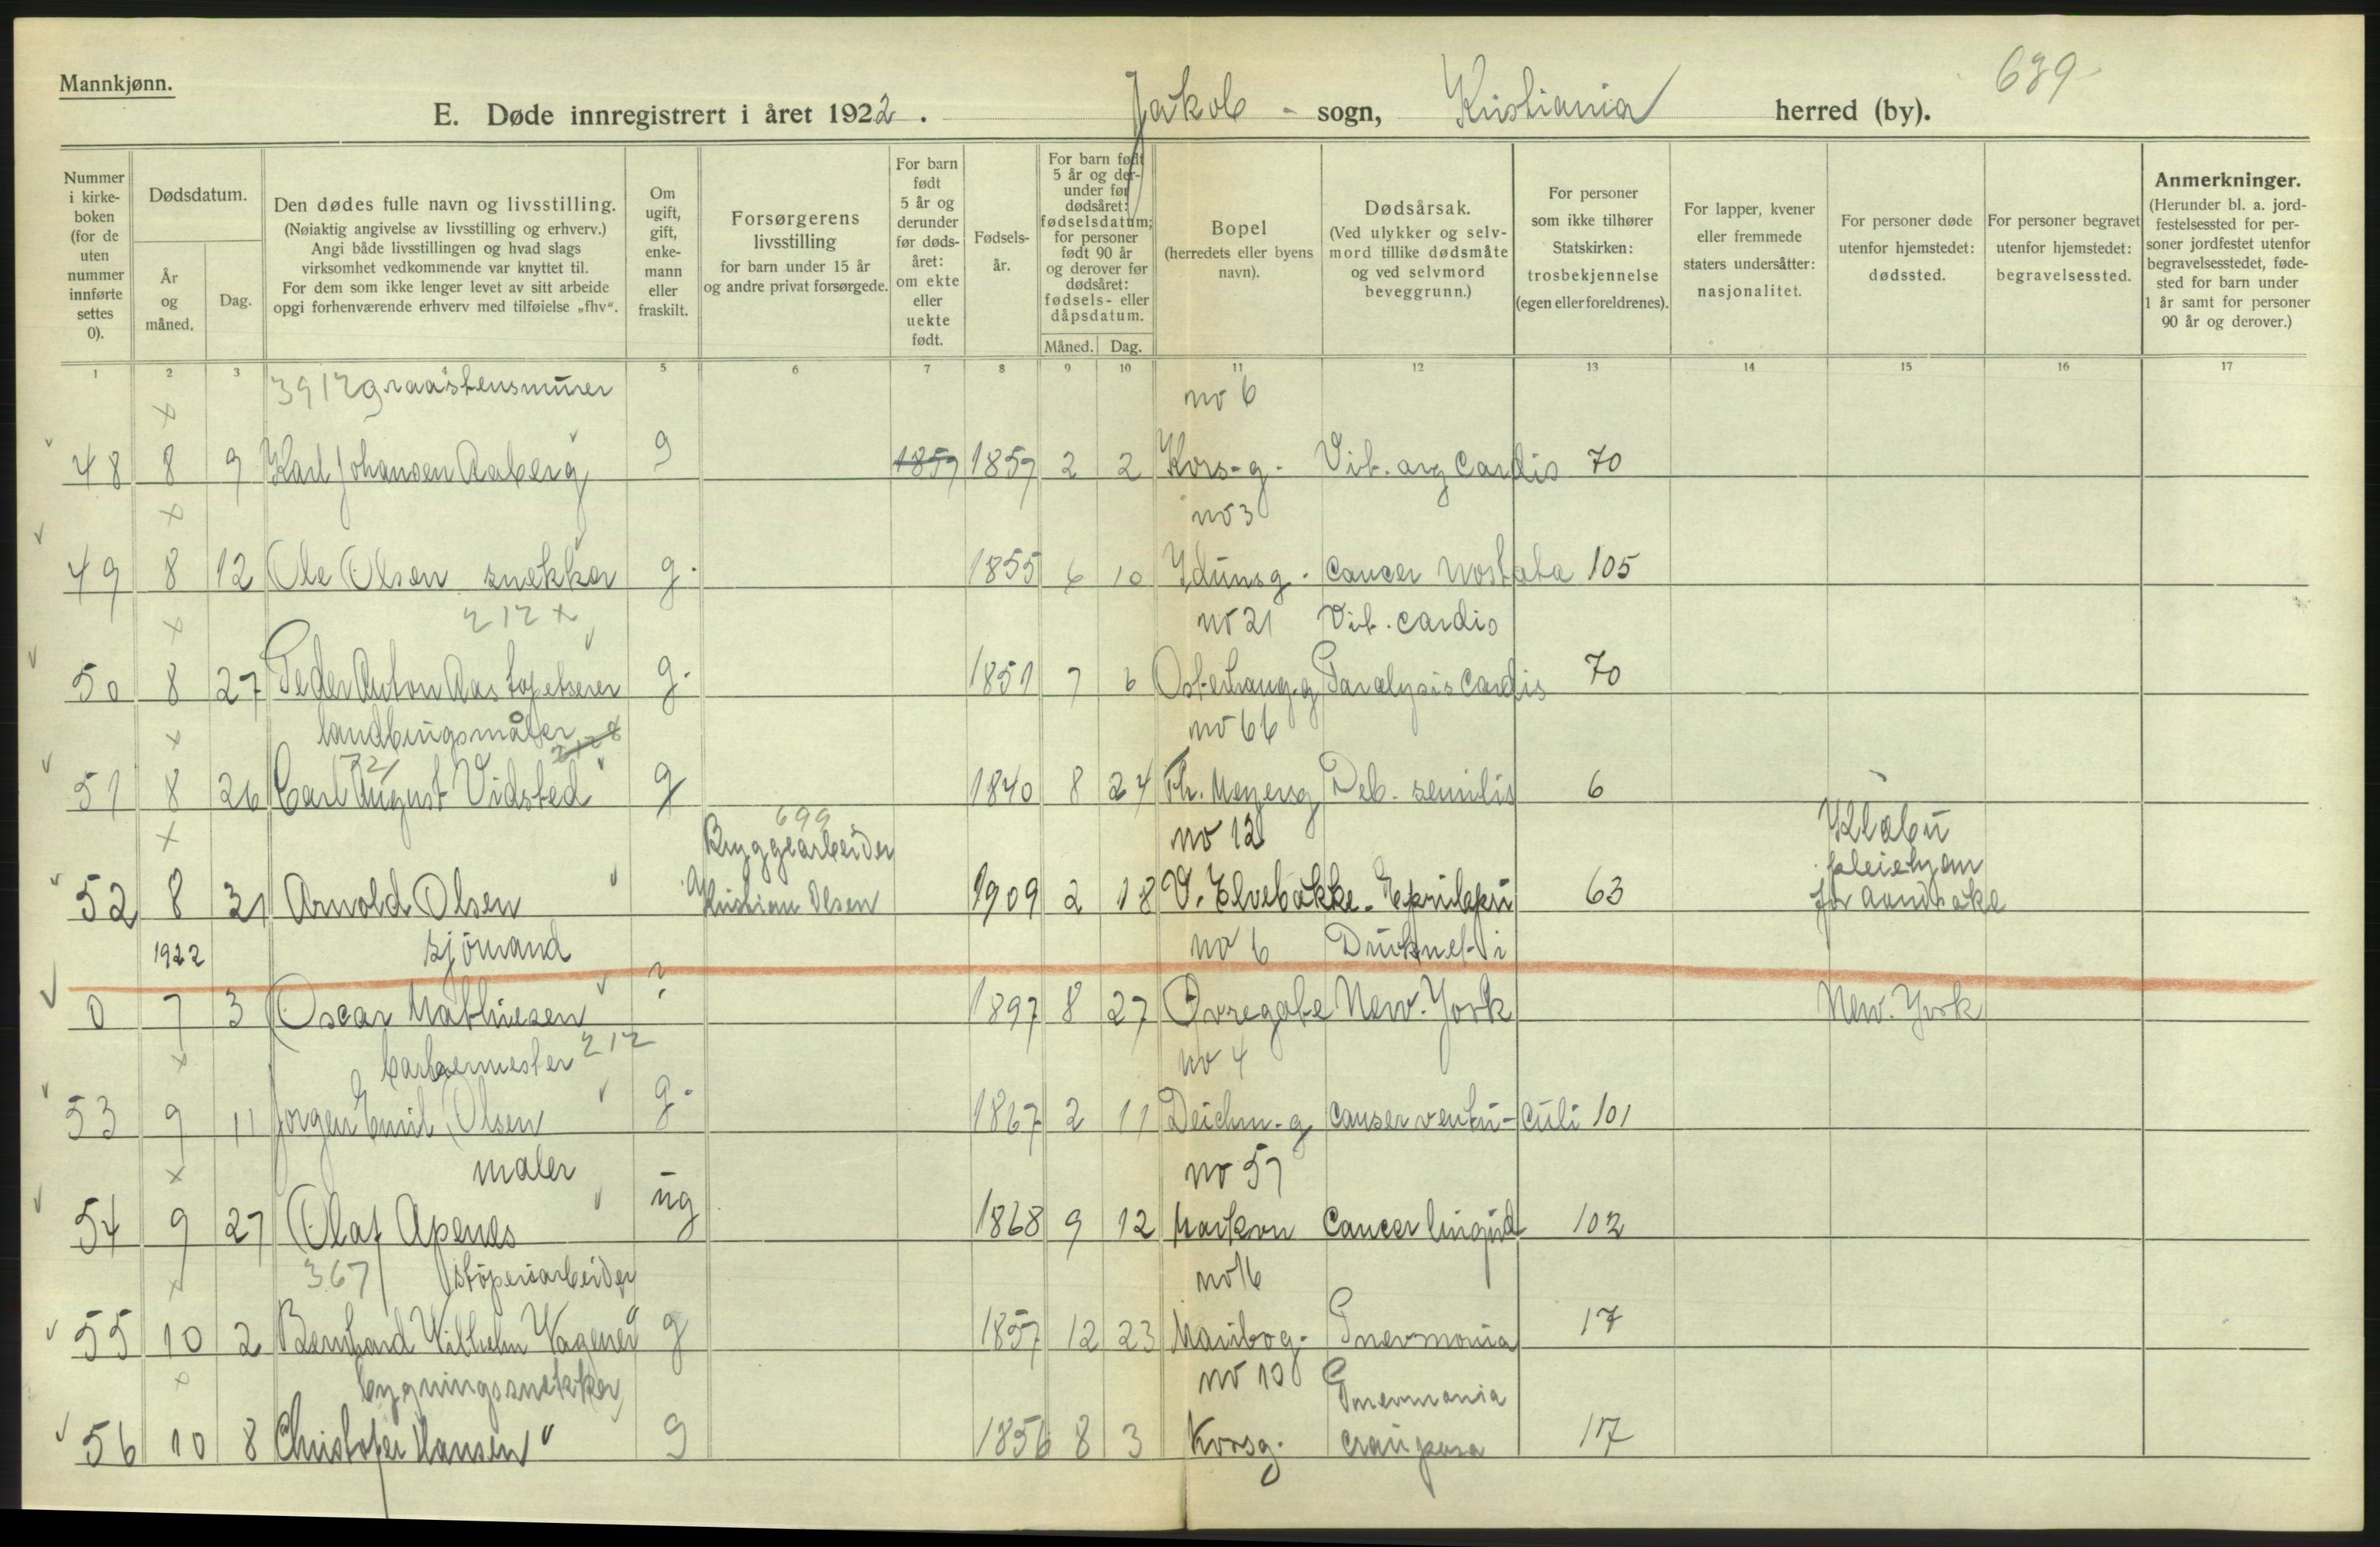 Mannkjønn.
639
E. Døde innregistrert i året 1922. Jakob - sogn, Kristiania herred (by).
Nummer i kirke-boken (for de uten nummer innførte settes 0).
Dødsdatum.
År og måned.
Dag.
Den dødes fulle navn og livsstilling.
(Nøiaktig angivelse av livsstilling og erhverv.)
Angi både livsstillingen og hvad slags
virksomhet vedkommende var knyttet til.
For dem som ikke lenger levet av sitt arbeide
opgi forhenværende erhverv med tilføielse „fhv“.
Om ugift, gift, enke-mann eller fraskilt.
Forsørgerens livsstilling
for barn under 15 år
og andre privat forsørgede.
For barn født 5 år og derunder før døds-året: om ekte eller uekte født.
Fødsels-år.
For barn født 5 år og der-under før dødsåret: fødselsdatum; for personer født 90 år og derover før dødsåret: fødsels- eller dåpsdatum.
Måned. Dag.
Bopel
(herredets eller byens navn).
Dødsårsak.
(Ved ulykker og selv-mord tillike dødsmåte og ved selvmord beveggrunn.)
For personer som ikke tilhører Statskirken: trosbekjennelse (egen eller foreldrenes).
For lapper, kvener eller fremmede staters undersåtter: nasjonalitet.
For personer døde utenfor hjemstedet: dødssted.
For personer begravet utenfor hjemstedet: begravelsessted.
Anmerkninger.
(Herunder bl. a. jord-festelsessted for per-soner jordfestet utenfor begravelsesstedet, føde-sted for barn under 1 år samt for personer 90 år og derover.)
1 2 3 5 6 7 8 9 10 11 12 13 14 15 16 17
3912 graastensmurer no 6
x
48 8 9 Karl Johansen Aaberg g 1859 1859 2 2 Kors-g. Vit. org Cardis 70
x no 3
49 8 12 Ole Olsen snekker g. 1855 6 10 Idunsg. Cancer 105
x 212 x no 21 Vit. cardis
50 8 27 Peder Anton Aas g. 1851 7 6 Osterhaug.g Paralysis Cardis 70
x no 66
721
51 8 26 Carl August Vidsted g 1840 8 24 Th. Meyersg Deb. senilis 6
x 699 Bryggearbeider no 12 Klæbu
pleiehjem
52 8 31 Arnold Olsen Kristian Olsen 1909 2 18 V. Elvebakke. 63 for aandsvake
1922 sjömand no 6 Druknet i
0 7 3 Oscar Mathiesen ? 1897 8 27 Övregate New. York New. York
x barbermester 212 no 4
53 9 11 Jörgen Emil Olsen g. 1867 2 11 Deichm.-g Canser ventri-culi 101
x maler no 57
54 9 27 Olaf Apenes ug 1868 9 12 Markvn Cancer 102
x 367 støperiarbeider no 16
55 10 2 Bernhard Vilhelm Wagener g 1857 12 23 Maribog. Pnevmonia 17
x bygningssnekker no 10 Pnevmonia
56 10 8 Christofer Hansen g 1856 8 3 Korsg. crouposa 17